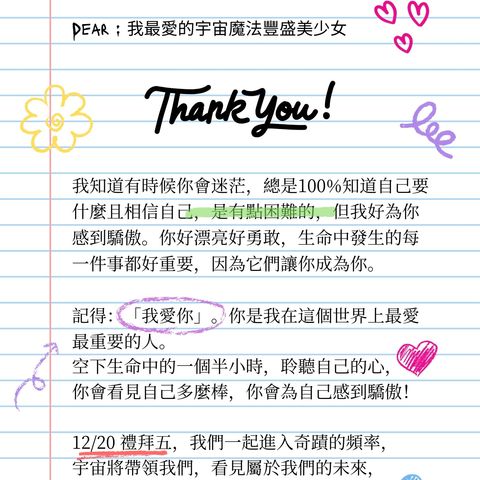 DEAR；我最愛的宇宙魔法豐盛美少女
Thank You!
我知道有時候你會迷茫，總是100%知道自己要
什麼且相信自己，是有點困難的，但我好為你
感到驕傲。你好漂亮好勇敢，生命中發生的每
一件事都好重要，因為它們讓你成為你。
記得：「我愛你」。你是我在這個世界上最愛
最重要的人。
空下生命中的一個半小時，聆聽自己的心，
你會看見自己多麼棒，你會為自己感到驕傲！
12/20 禮拜五，我們一起進入奇蹟的頻率，
宇宙將帶領我們，看見屬於我們的未來，